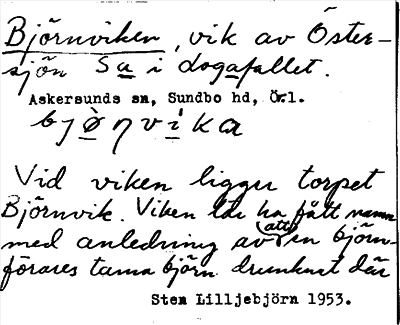 Björnviken, vik av Öster-
sjön Sa i dogafallet.
Askersunds sn, Sundbo hd, Ö.l.
bjö̀ŋvi̇ka
Vid viken ligger torpet
Björnvik. Viken lär ha fått namn
med anledning av (att) en björn-
förares tama björn drunknat där
Sten Lilljebjörn 1953.